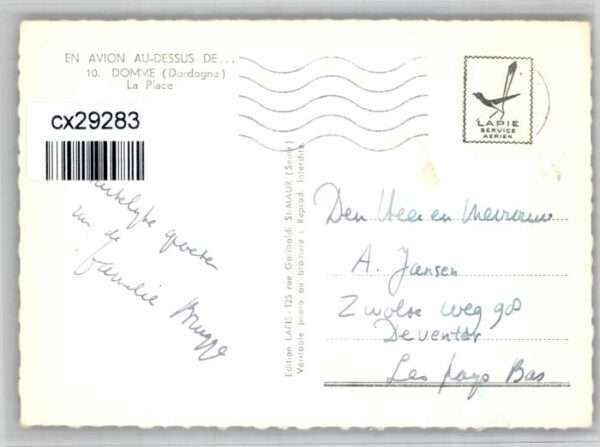 EN AVION AU-DESSUS DE...
10. DOMME (Dordogne)
La Place
cx29283
LAPIE
SERVICE
AERIEN
groeten
van de
familie Brugge
Edition LAPIE - 125 rue Garibaldi St-MAUR (Seine)
Véritable photo au bromure - Reprod. Interdite
Den Heer en Mevrouw
A. Jansen
Zwolse weg 98
Deventer
Les pays Bas